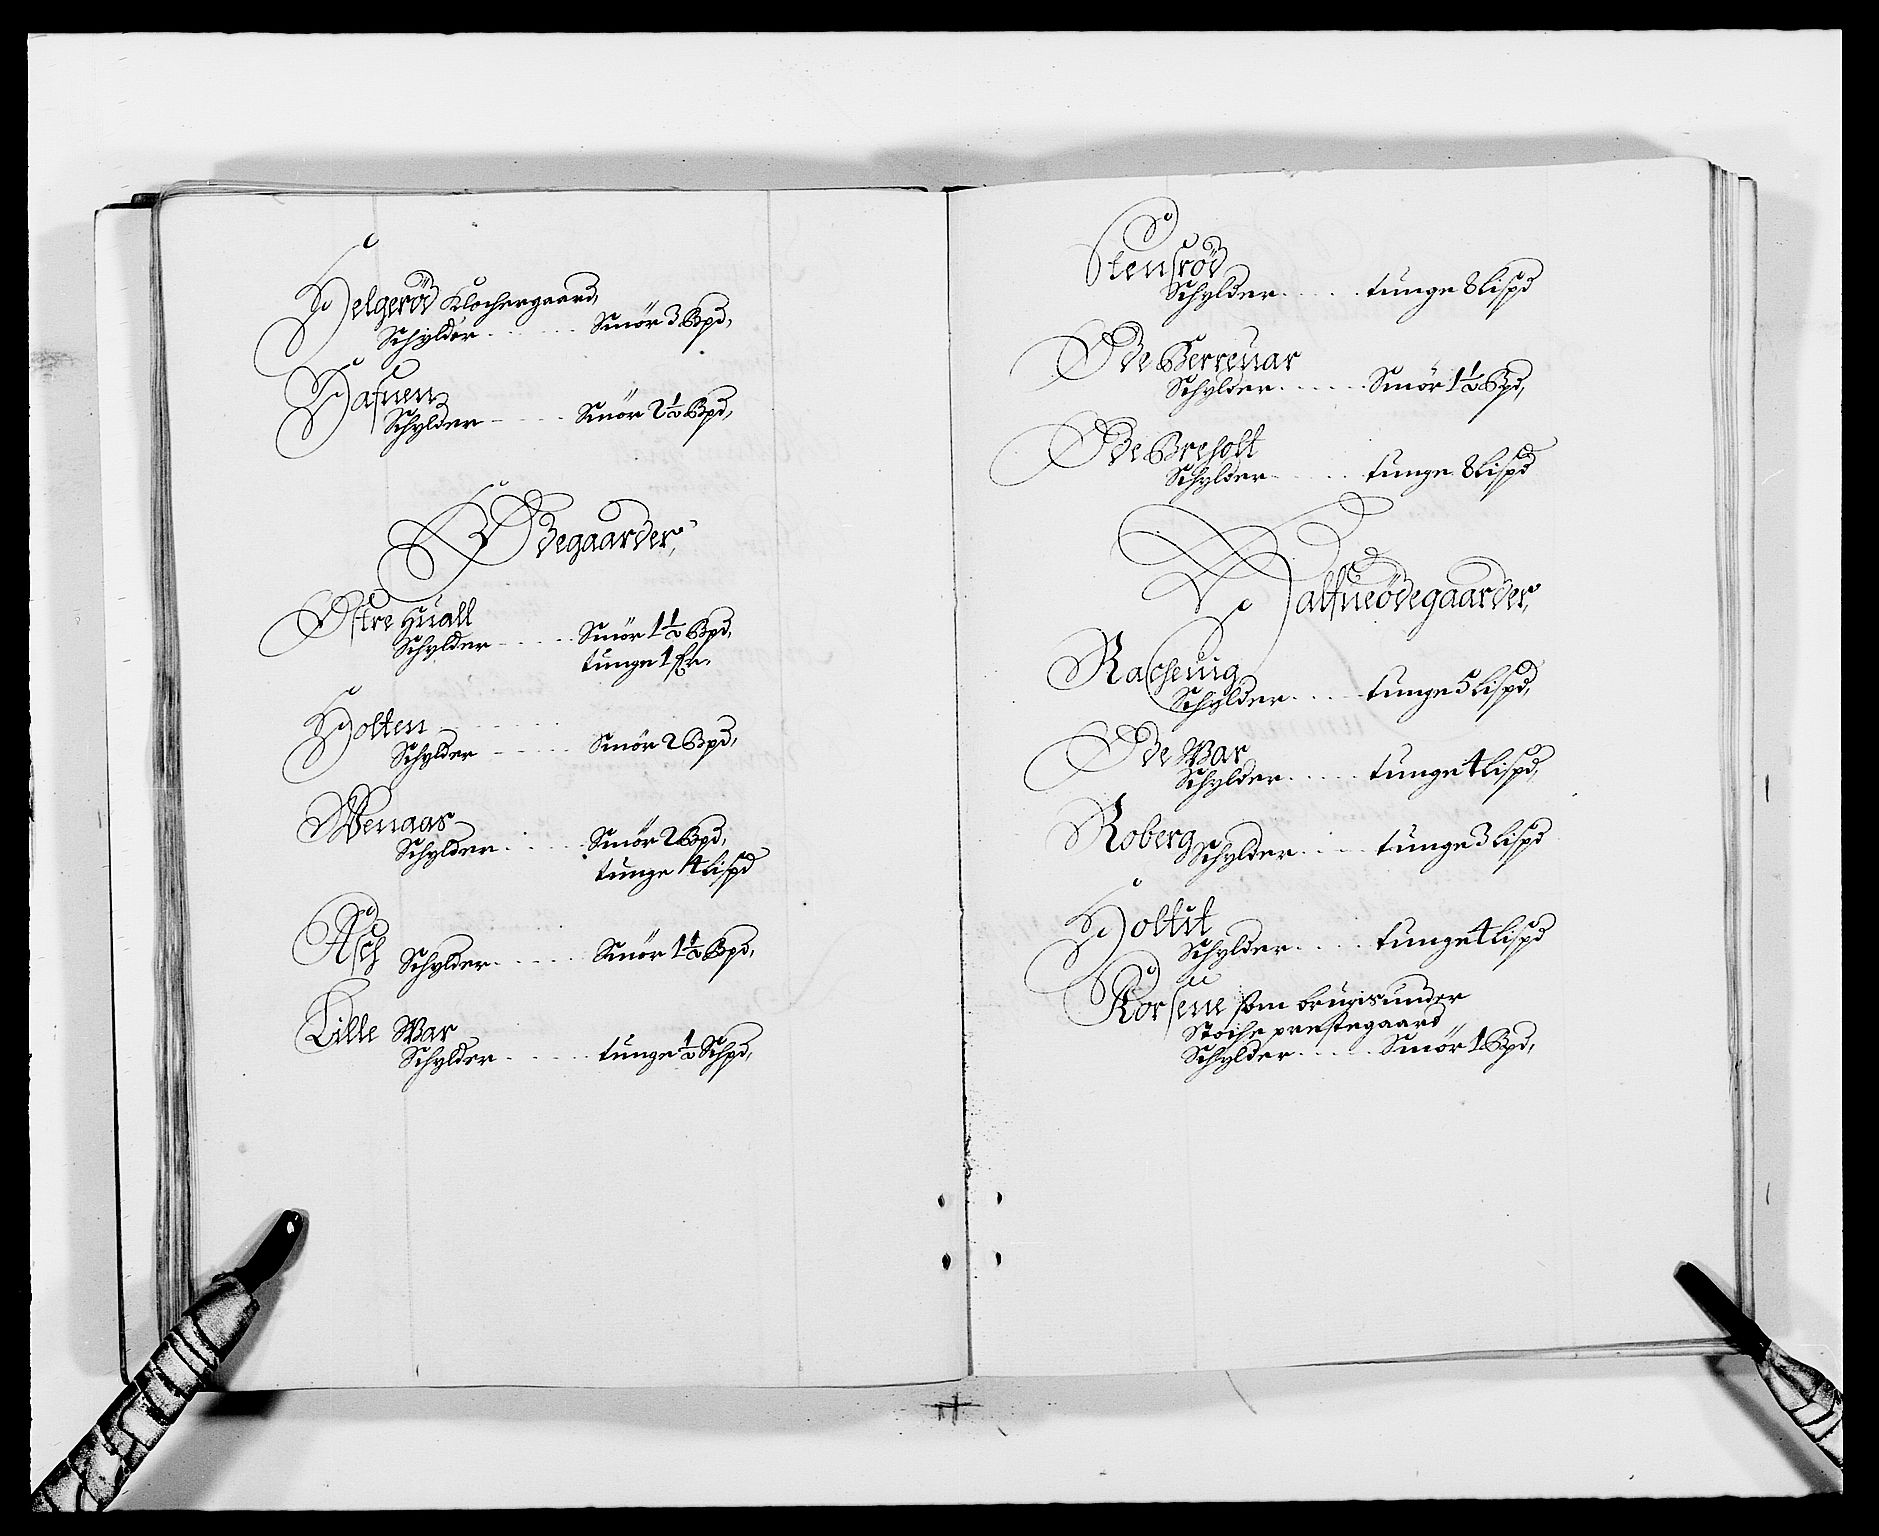 Helgerød Klochergaard,
Schylder . . . . . Smør 3 Bpd,
Hafuen
Schylder - . . . . Smør 2½ Bpd,
Ødegaarder,
Østre Huall
Schylder . . . . . Smør 1½ Bpd,
tunge 1 fr.
Holten
Schylder . . . . . Smør 2 Bpd,
Wenaas
Schylder . . . . . Smør 2 Bpd,
tunge 4 lispd
Asch
Schylder . . . . . Smør 1½ Bpd,
Lille War
Schylder . . . . . tunge ½ Schpd,
Stensrød
Schylder . . . . . tunge 8 lispd
Øde Berreuar
Schylder . . . . . Smør 1½ Bpd,
Øde Breholt
Schylder . . . . . tunge 8 lispd
Halfueødegaarder,
Racheuig
Schylder . . . . . tunge 5 lispd,
Øde War
Schylder . . . . . tunge 4 lispd,
Roberg
Schylder . . . . . tunge 3 lispd
Holtit
Schylder . . . . . tunge 4 lispd
Korsene som brugis under
Stoche prestegaard
Schylder . . . . . Smør 1 Bpd,